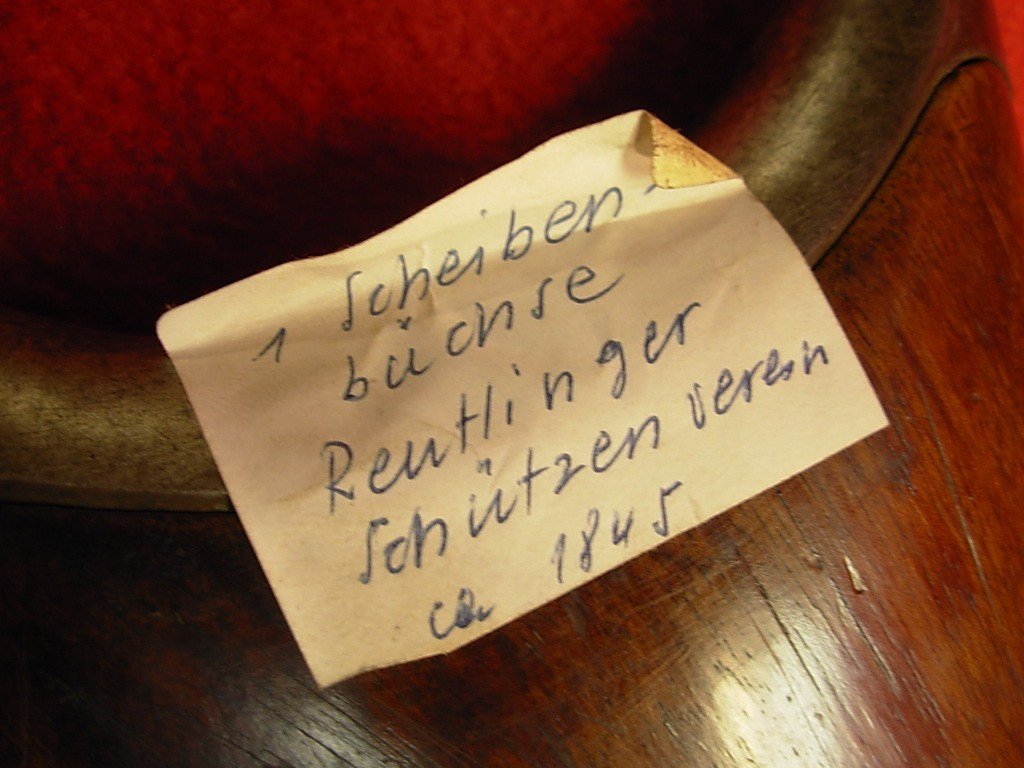 1 Scheiben-
büchse
Reutlinger
Schützenverein
ca 1845